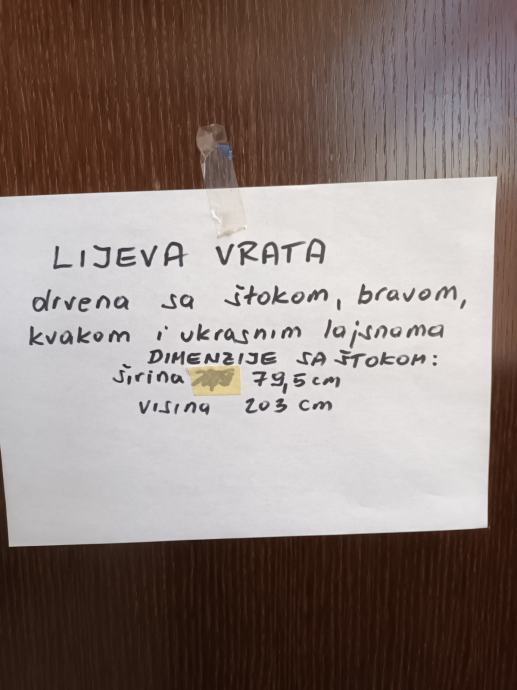 LIJEVA VRATA
drvena sa štokom, bravom,
kvakom i ukrasnim lajsnama
DIMENZIJE SA ŠTOKOM:
širina 79,5 cm
visina 203 cm